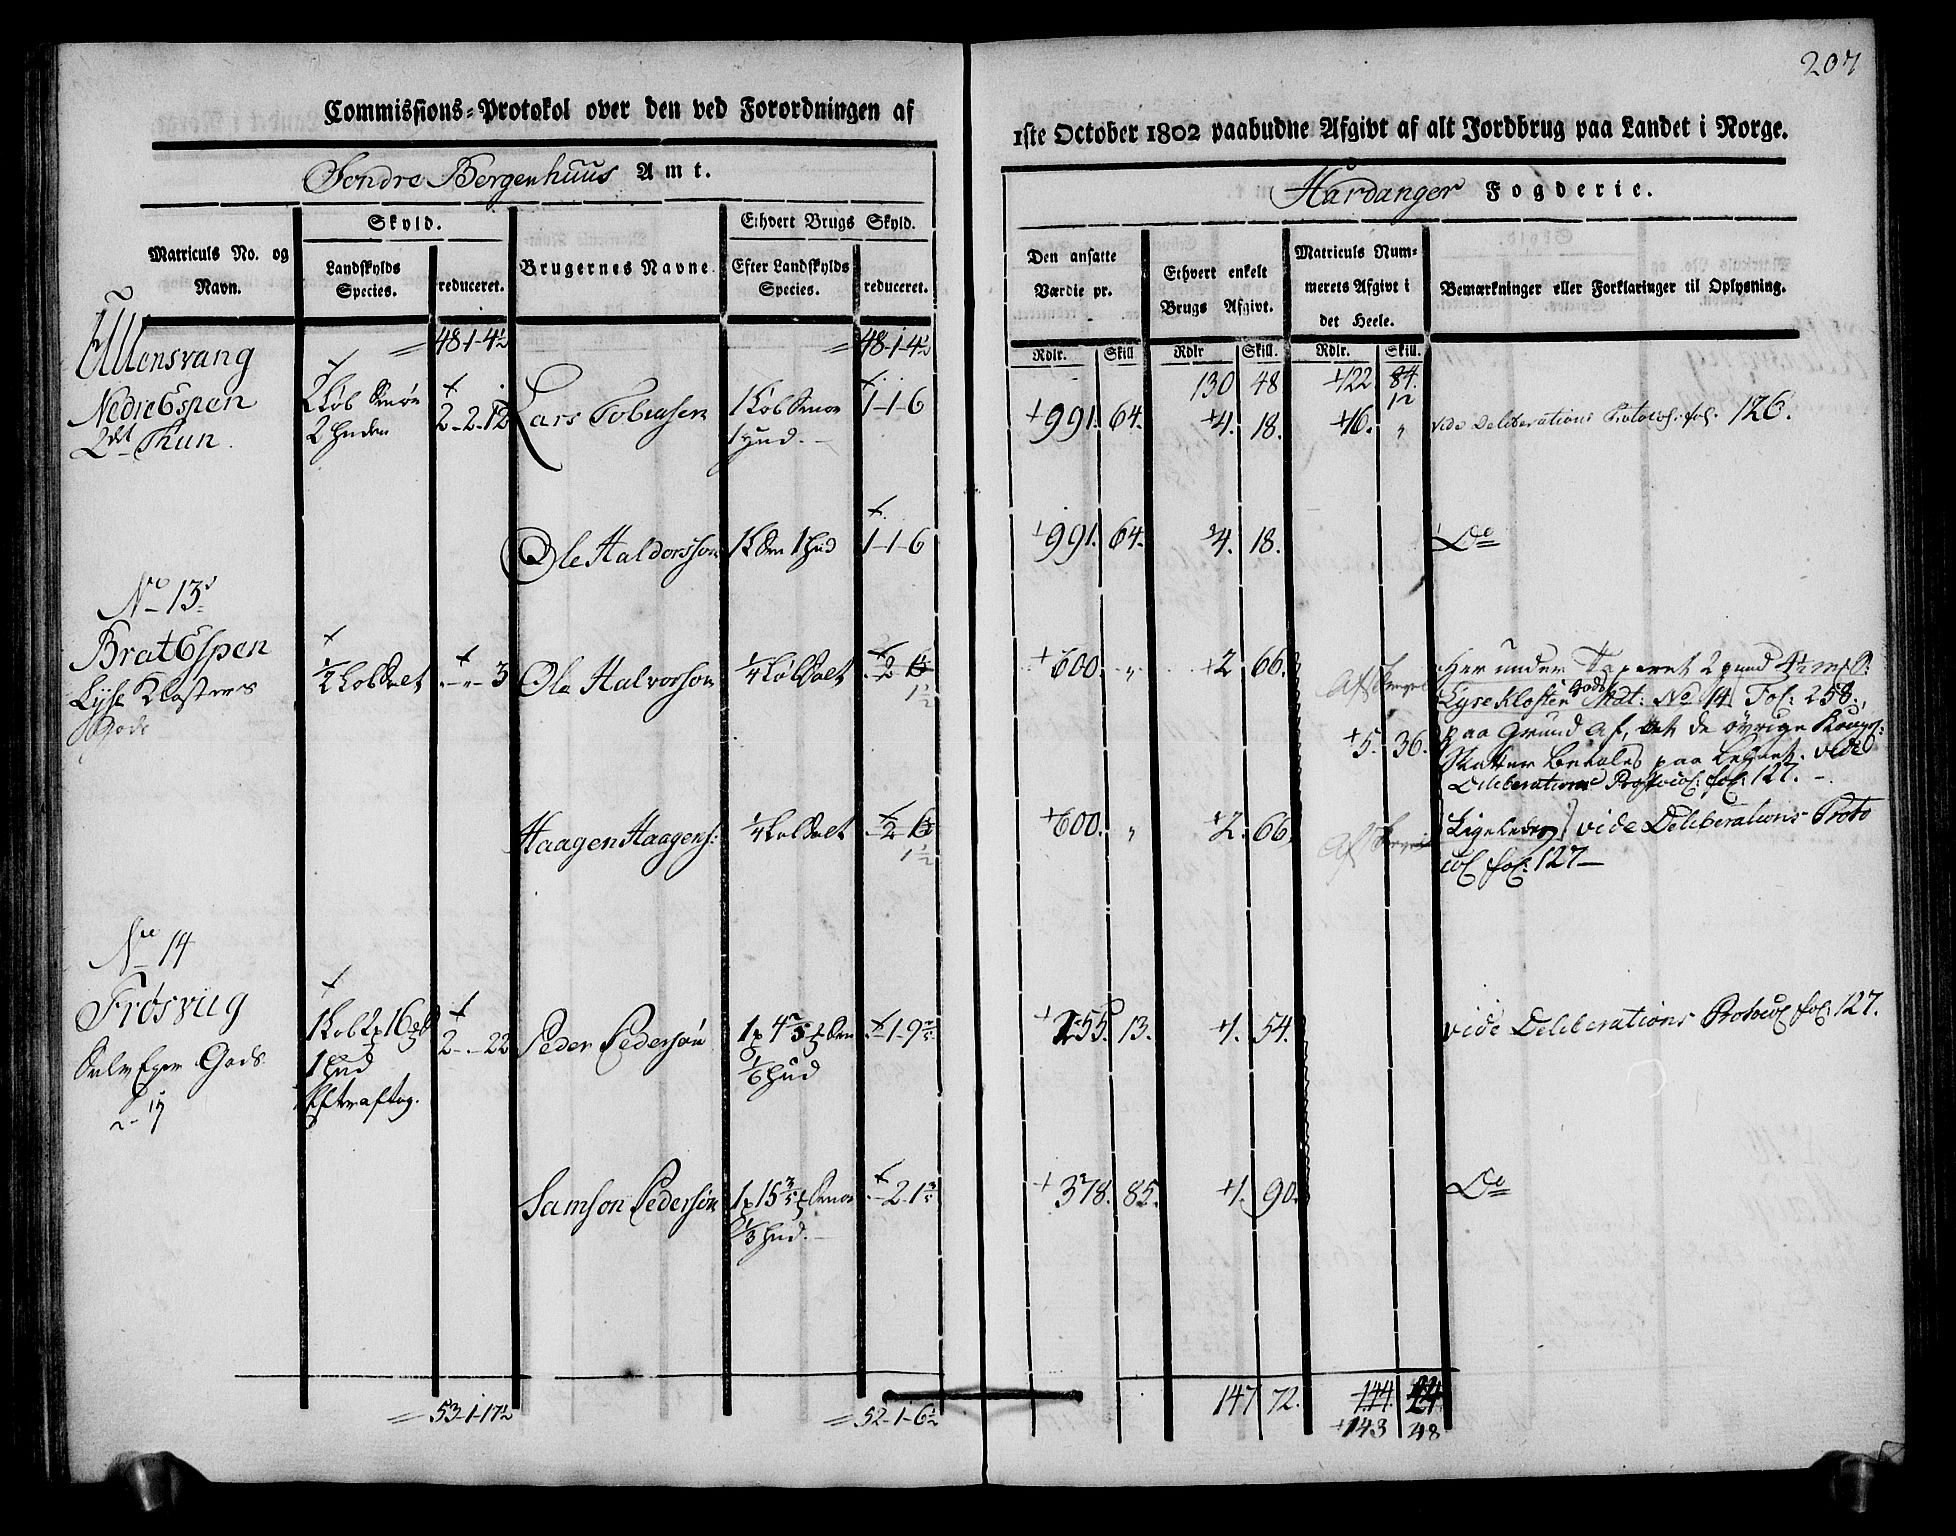 207
Commissions=Protokol over den ved Forordningen af
1ste October 1802 paabudne Afgivt af alt Jordbrug paa Landet i Norge.
Søndre Bergenhuus Amt.
Hardanger Fogderie.
Matriculs No. og Navn.
Skyld.
Landskylds Species.
reduceret.
Brugernes Navne.
Ethvert Brugs Skyld.
Efter Landskylds Species.
reduceret.
Den ansatte Værdie pr.
Ethvert enkelt Brugs Afgivt.
Matriculs Nummerets Afgivt i det Heele.
Bemærkninger eller Forklaringer til Oplysning.
Rdlr. Skill. Rdlr Skill. Rdlr. Skill.
Ullensvang 48-1-4½ 48-1-4½ 130 48 122 84.
12
Nedre Espen 2 Løb Smør 2-2-12 Lars Tobiasen 1 Løb Smør 1-1-6 991. 64. 4. 18. 16. „ vide Deliberations Protocol. fol. 126.
2det Thun. 2 Huder 1 Hud.
Ole Haldorsson 1 Hud 1-1-6 991. 64. 4. 18. Do
No 13
Brat Espen ½ Løb Salt -„-3 Ole Halvorson ¼ Løb Salt 600 „ 2 66. Her under Taxeret 2 pund 4½
1½
Lyse Klosters Lyse Kloster Gods Mat: No 14 Fol: 258,
Gods paa Grund af, at de øvrige
5. 36. Skatter betales paa vide
Deliberations Protocol: fol: 127.
Haagen Haagens: ¼ Løb Salt 600. „ 2. 66. Ligeledes vide Deliberations Proto
1½
col fol: 127
No 14
Frøsviig 2-„-22 Peder Pedersøn 1-9 255. 13. 1. 54. vide Deliberations Protocol fol: 127.
Selv Eger Gods 1 Hud 1/6 Hud
Samson Pedersøn 2-1 378. 85. 1. 90. Do
1/3 Hud.
53-1-17½ 52-1-6½ 147 72. 144
143 48